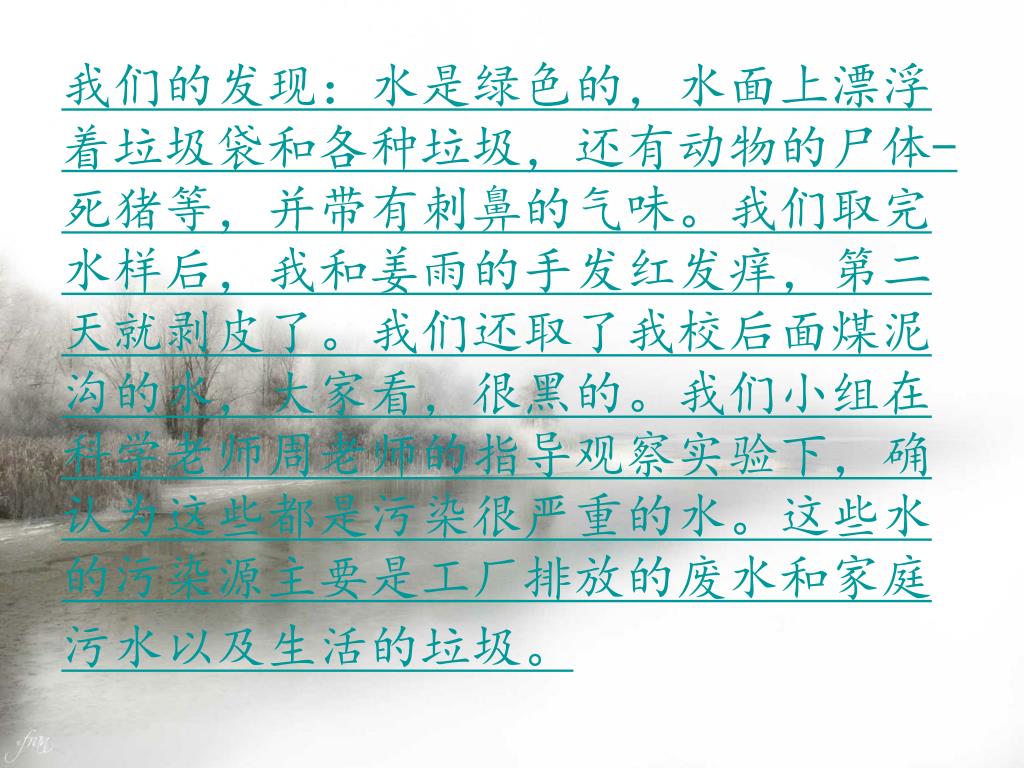 我们的发现：水是绿色的，水面上漂浮
着垃圾袋和各种垃圾，还有动物的尸体-
死猪等，并带有刺鼻的气味。我们取完
水样后，我和姜雨的手发红发痒，第二
天就剥皮了。我们还取了我校后面煤泥
沟的水，大家看，很黑的。我们小组在
科学老师周老师的指导观察实验下，确
认为这些都是污染很严重的水。这些水
的污染源主要是工厂排放的废水和家庭
污水以及生活的垃圾。
fran